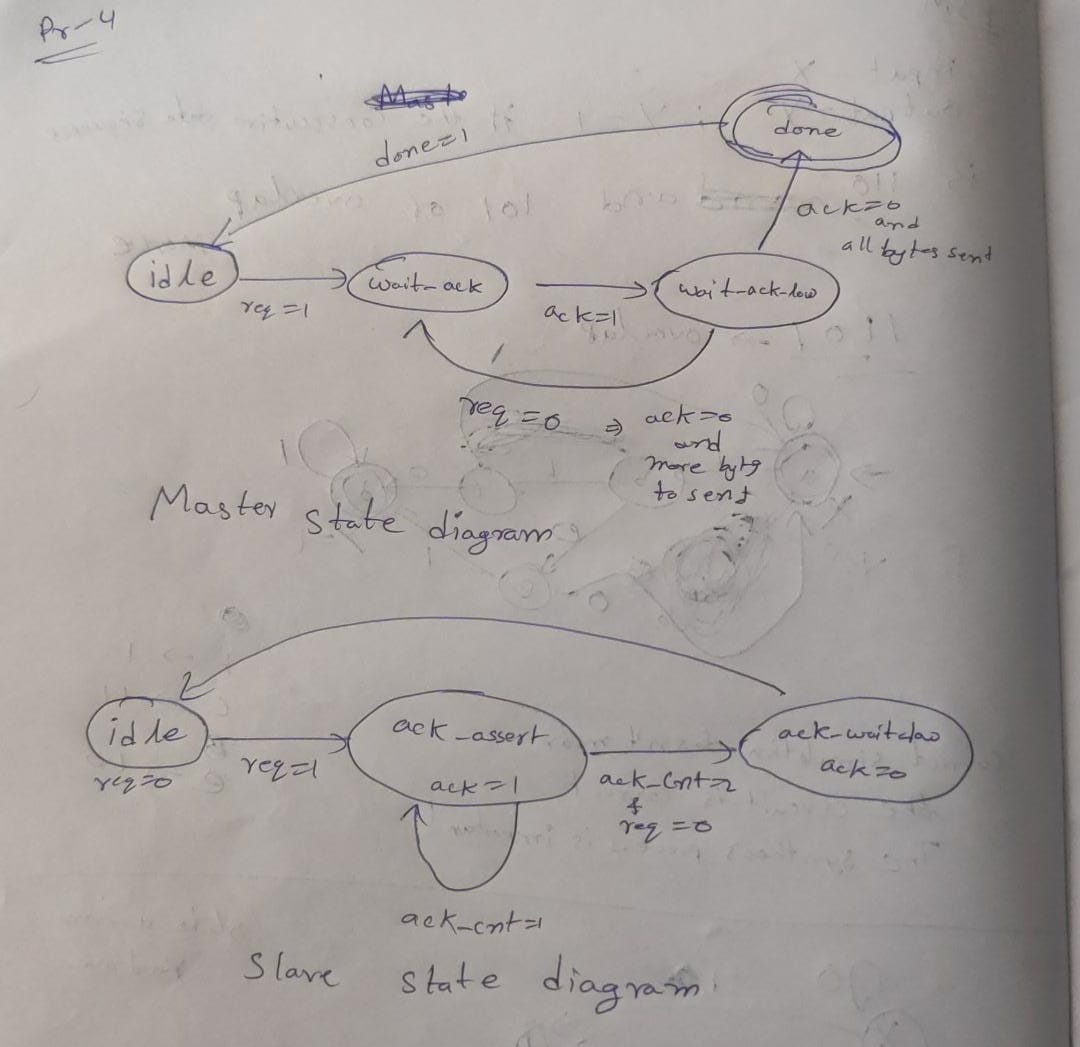 Pr-4
done
done=1
ack=0
and
all bytes sent
idle
wait-ack
wait-ack-low
req=1
ack=1
req=0 ⇒ ack=0
and
more byts
to sent
Master state diagram
idle
req=0
req=1
ack_assert
ack=1
ack-cnt=2
&
req=0
ack=0
ack-cnt=1
Slave state diagram